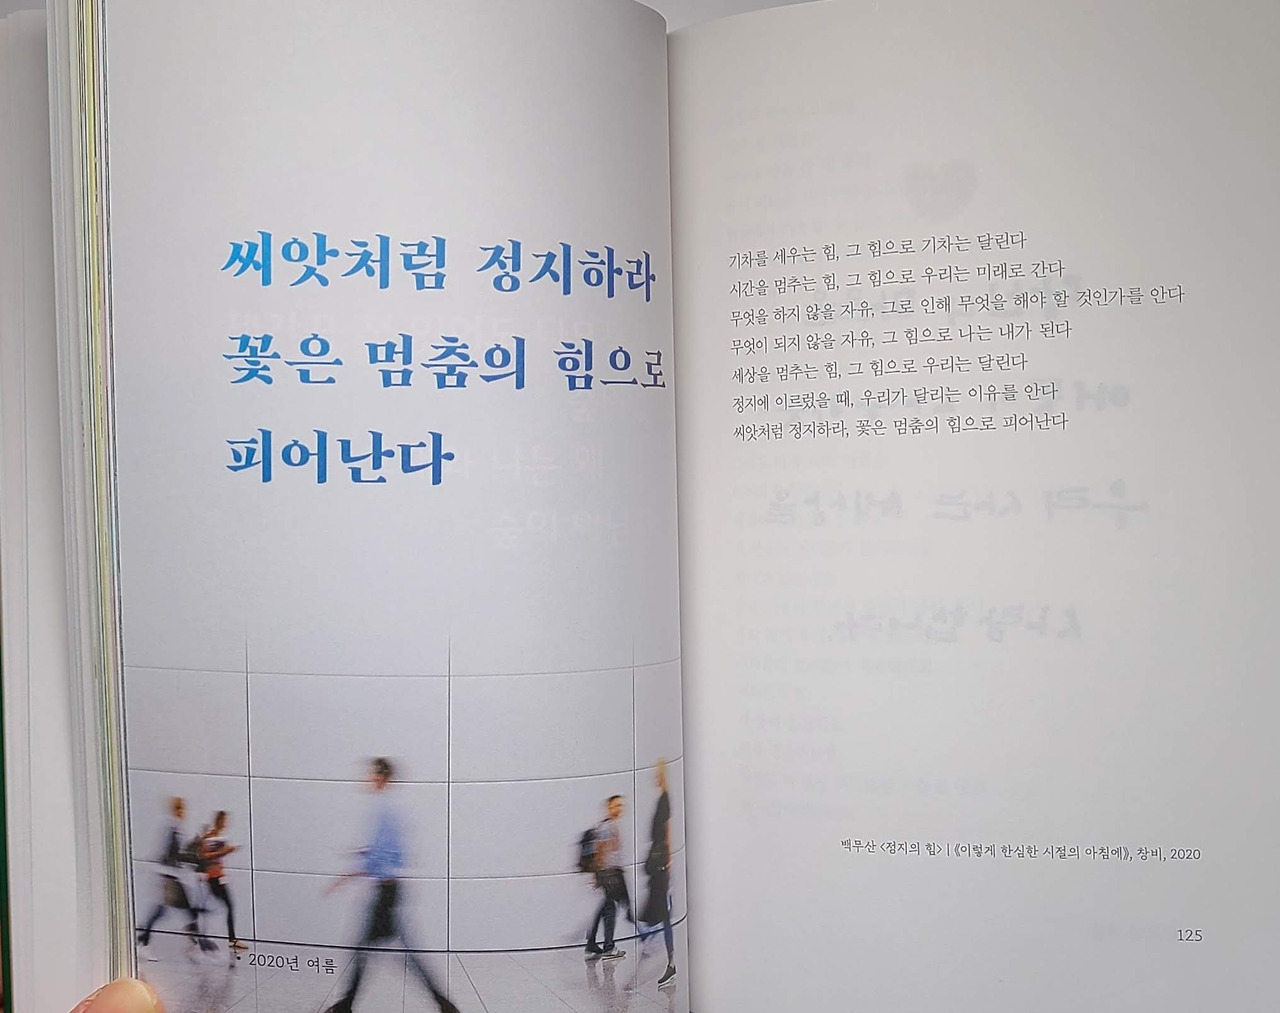 씨앗처럼 정지하라
꽃은 멈춤의 힘으로
피어난다
2020년 여름
기차를 세우는 힘, 그 힘으로 기차는 달린다
시간을 멈추는 힘, 그 힘으로 우리는 미래로 간다
무엇을 하지 않을 자유, 그로 인해 무엇을 해야 할 것인가를 안다
무엇이 되지 않을 자유, 그 힘으로 나는 내가 된다
세상을 멈추는 힘, 그 힘으로 우리는 달린다
정지에 이르렀을 때, 우리가 달리는 이유를 안다
씨앗처럼 정지하라, 꽃은 멈춤의 힘으로 피어난다
백무산 <정지의 힘> | 《이렇게 한심한 시절의 아침에》, 창비, 2020
125